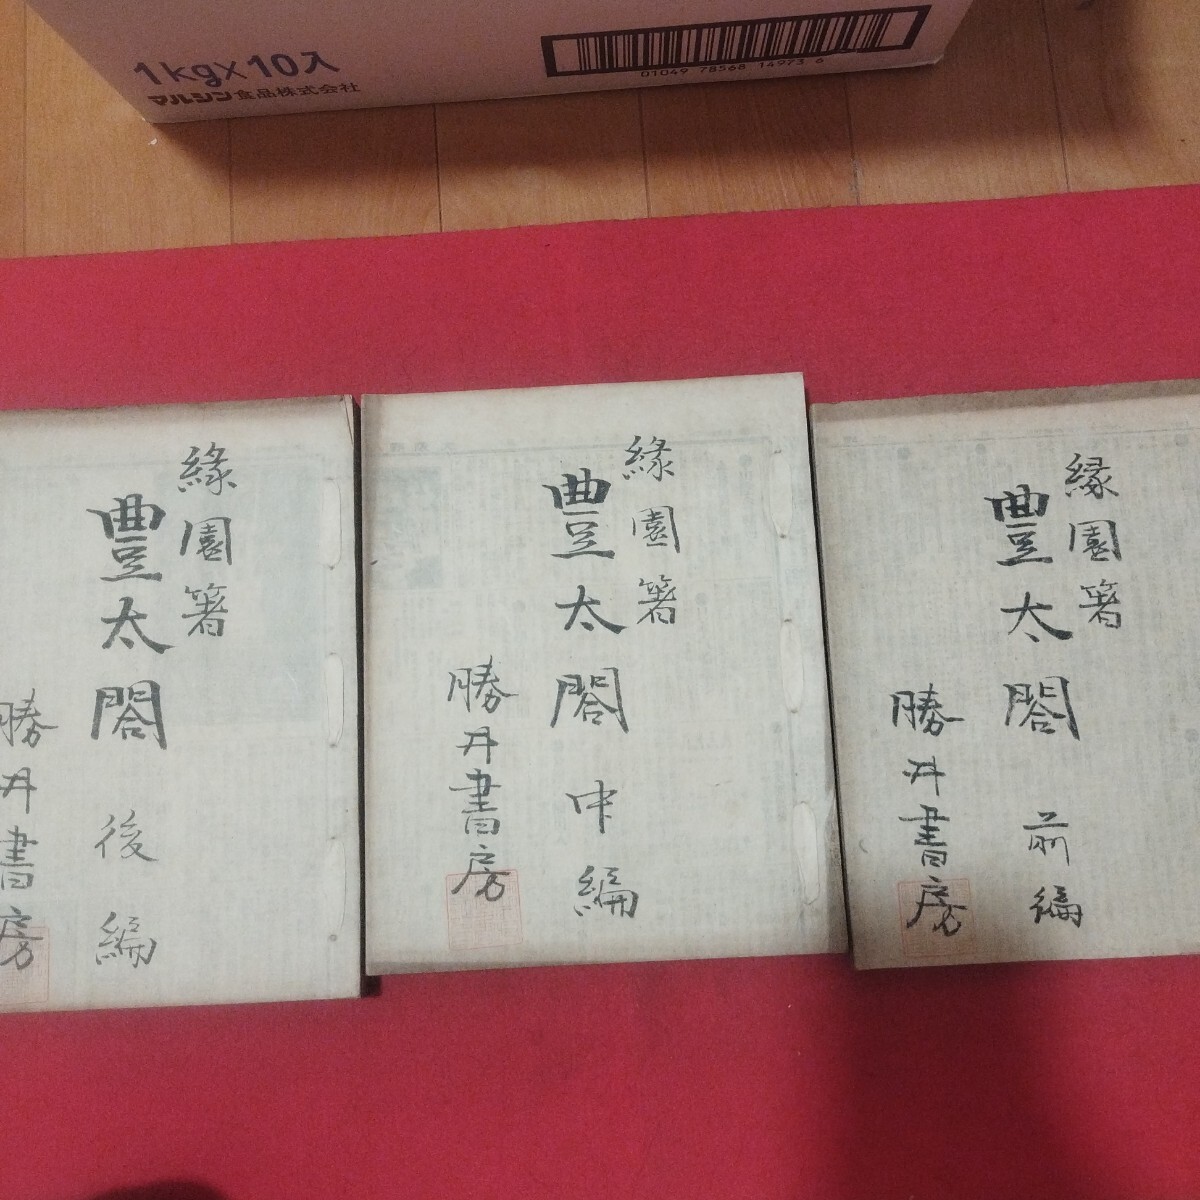 1kg×10入
マルシン食品株式会社
01049 78568 14973 6
縁園著
豊太閤 前編
勝井書房
縁園著
豊太閤 中編
勝井書房
縁園著
豊太閤 後編
勝井書房